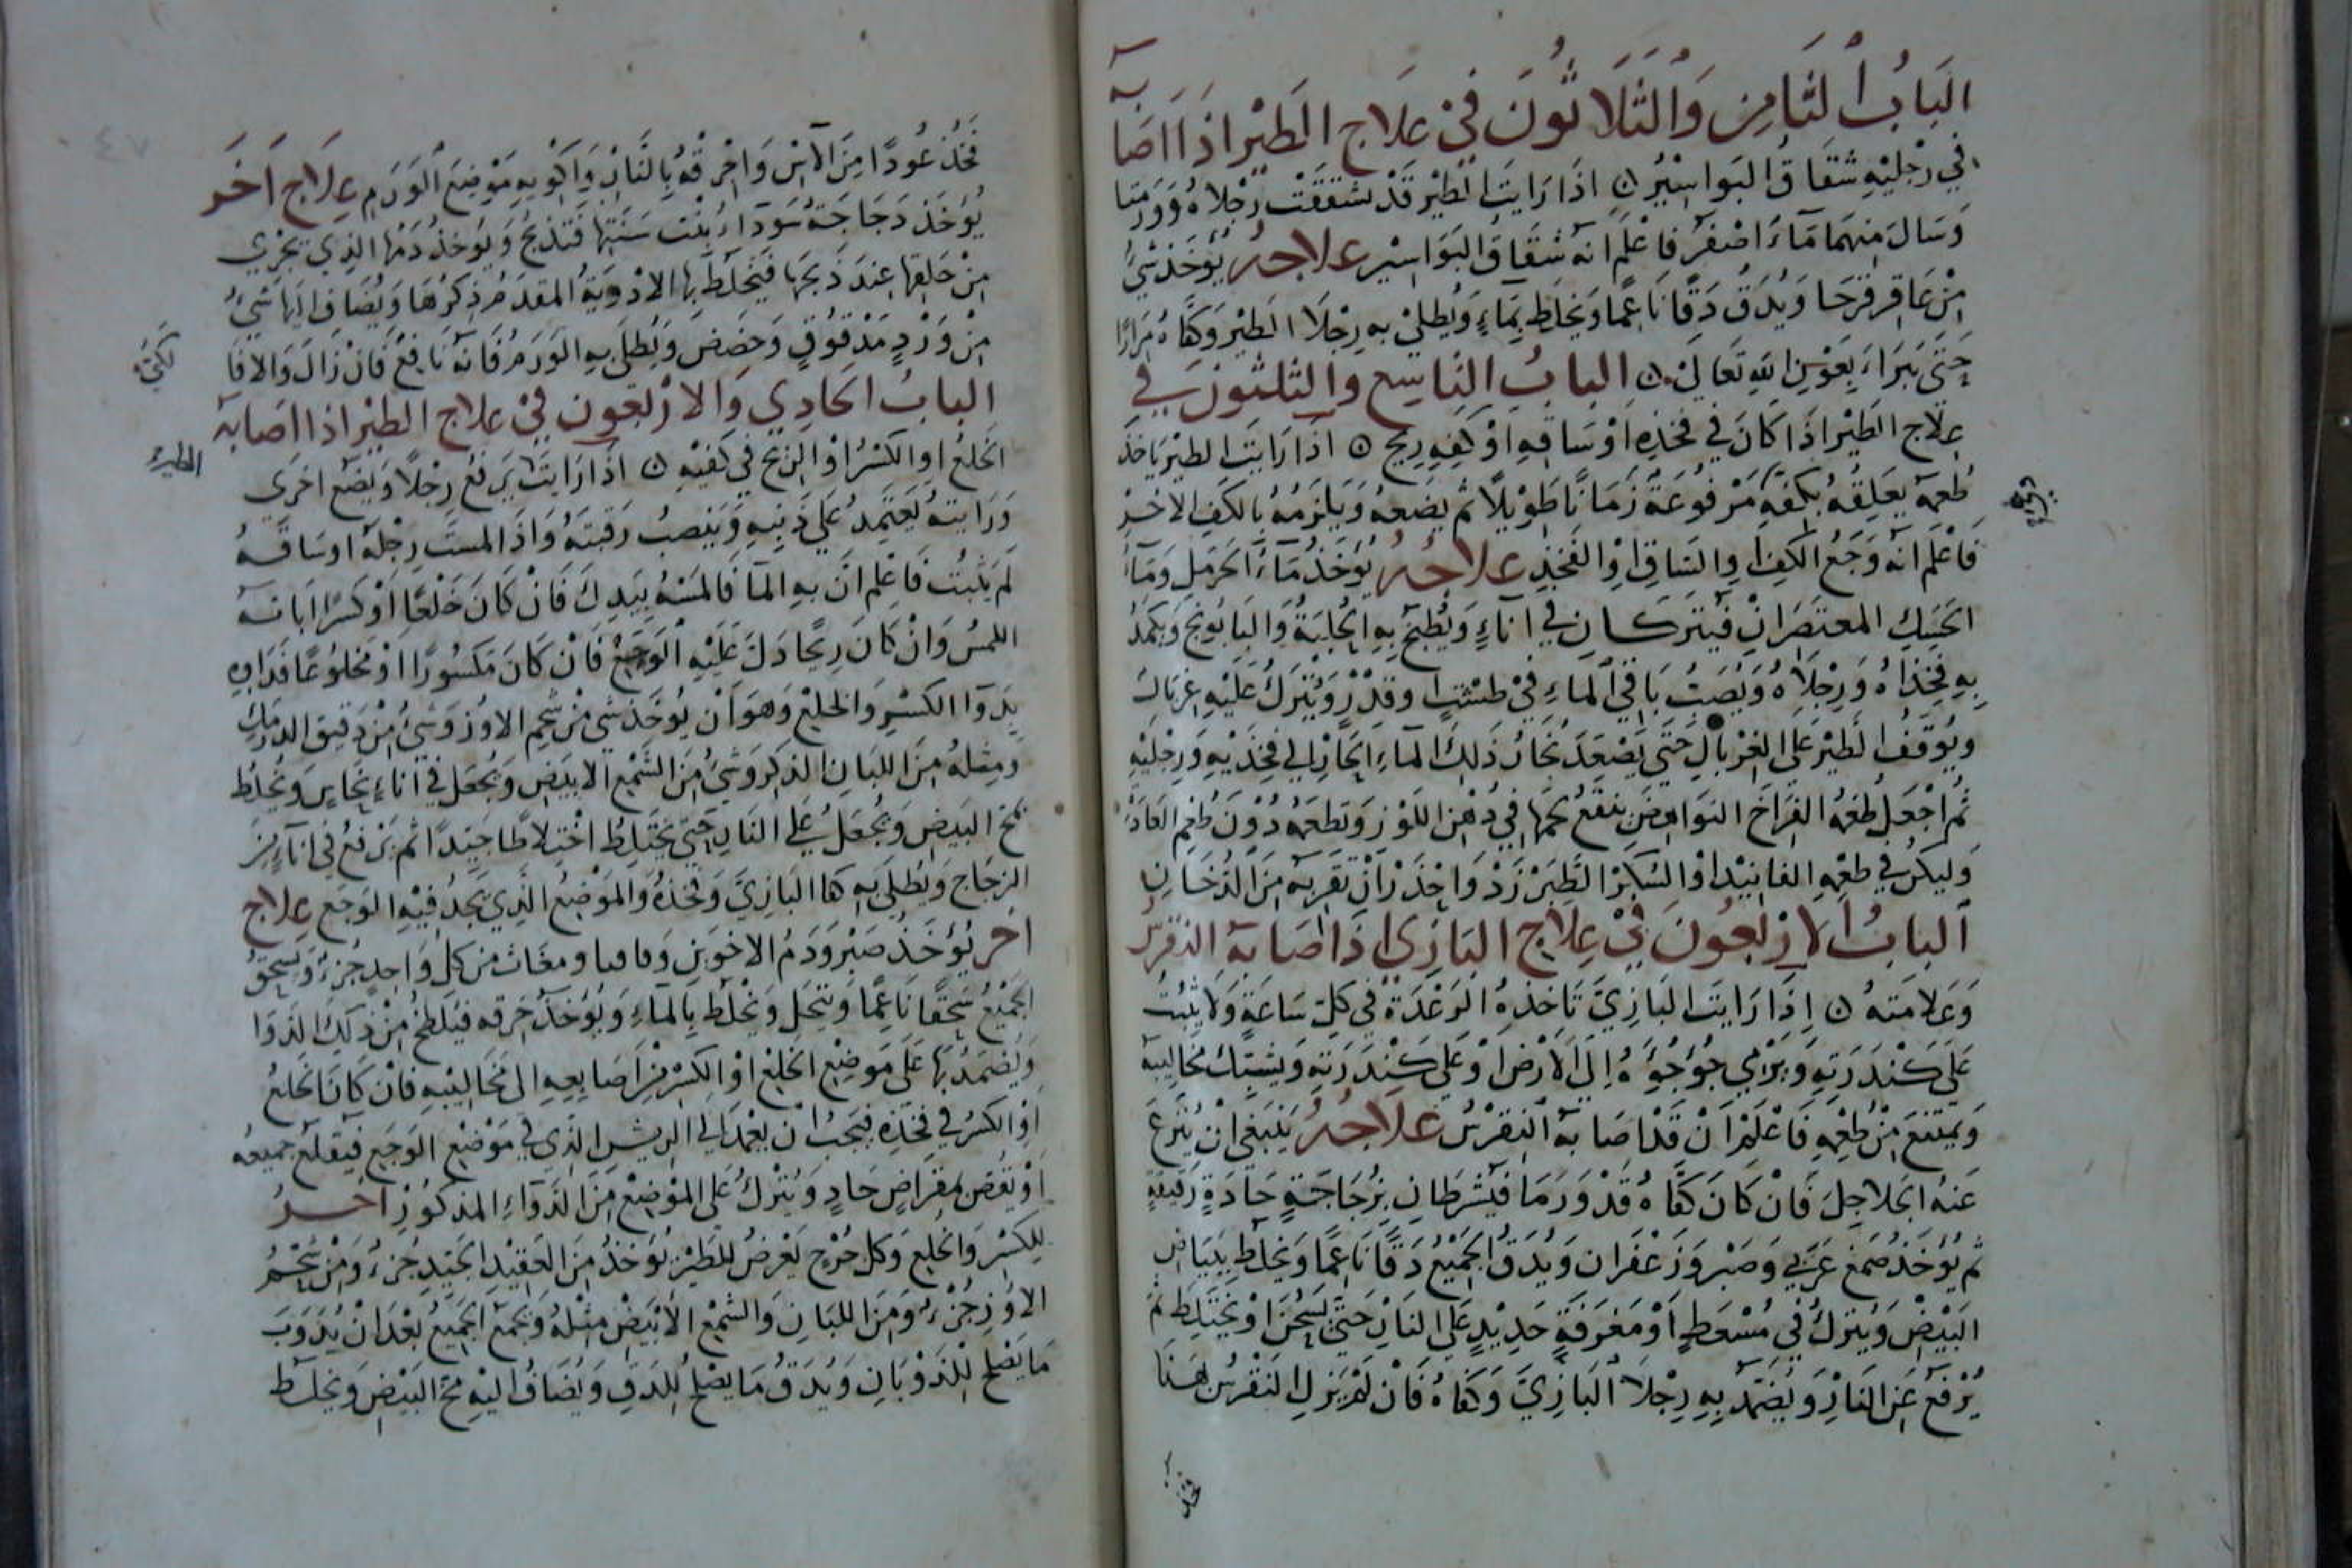 الباب الثامن والثلاثون في علاج الطير اذا اصابه
في رجليه شقاق البواسير ن اذا رايت الطير قد تشققت رجلاه وورمتا
وسال منهما ماء اصفر فاعلم انه شقاق البواسير علاجه يؤخذ شئ
من عاقر قرحا ويدق دقا ناعما ويخلط بماء ويطلى به رجلا الطير وكفاه مرارا
حتى تبراء بعون الله تعالى ن الباب التاسع والثلثون في
علاج الطير اذا كان في فخذه او ساقه او كفه ريح ن اذا رايت الطير ياخذ
طعمه يعلقه بكفه مرفوعة زمانا طويلا ثم يضعه ويلزمه بالكف الاخر
فاعلم انه وجع الكف او الساق او الفخذ علاجه يؤخذ ماء الحرمل وماء
الحسك المعتصران فيتركان في اناء ويطبخ به الحلبة والبابونج ويكمد
به فخذاه ورجلاه ويصب باقي الماء في طشت او قدر ويترك عليه غربال
ويوقف الطير على الغربال حتى يصعد بخار ذلك الماء الحار الى فخذيه ورجليه
ثم اجعل طعمه الفراخ النواهض ينقع لحمها في دهن اللوز وتطعمه دون طعم العادة
وليكن في طعمه الفانيد او السكر الطبرزد واحذر ان تقربه من الدخان
الباب الاربعون في علاج البازي اذا اصابه النقرس
وعلامته ن اذا رايت البازي تاخذه الرعدة في كل ساعة ولا يثبت
على كندرته ويرمي جؤجؤه الى الارض او على كندرته ويشبك مخاليبه
ويمتنع من طعمه فاعلم ان قد اصابه النقرس علاجه ينبغي ان ينزع
عنه الجلاجل فان كان كفاه قد ورما فيشرطان بزجاجة حادة رقيقة
ثم يؤخذ صمغ عربي وصبر وزعفران ويدق الجميع دقا ناعما ويخلط ببياض
البيض ويترك في مسعط او مغرفة حديد على النار حتى يسخن او يختلط ثم
يرفع عن النار ويضمد به رجلا البازي وكفاه فان لم يزل النقرس لهنا
فخذ
فخذ عودا من الآس واحرقه بالنار واكو به موضع الورم علاج اخر
يؤخذ دجاجة سوداء بنت سنتها فتذبح ويؤخذ دمها الذي يجري
من حلقها عند ذبحها فيخلط بها الادوية المقدم ذكرها ويضاف اليها شئ
من ورد مدقوق وحضض ويطلى به الورم فانه نافع فان زال والا فا
الباب الحادي والاربعون في علاج الطير اذا اصابه
الخلع او الكسر او الريح في كفيه ن اذا رايت يرفع رجلا ويضع اخرى
الطير
ورايته يعتمد على ذنبه وينصب رقبته واذا لمست رجله او ساقه
لم يثبت فاعلم ان به الما فالمسه بيدك فان كان خلعا او كسرا ابانه
اللمس وان كان ريحا دل عليه الوجع فان كان مكسورا او مخلوعا فداوه
بدوا الكسر والخلع وهو ان يؤخذ شئ من شحم الاوز وشئ من دقيق الدرمك
ومثله من اللبان الذكر وشئ من الشمع الابيض ويجعل في اناء نحاس ويخلط
مح البيض ويجعل على النار حتى يختلط اختلاطا جيدا ثم يرفع في اناء من
الزجاج ويطلى به كفا البازي وفخذه والموضع الذي يجد فيه الوجع علاج
اخر يؤخذ صبر ودم الاخوين وقاقيا ومغاث من كل واحد جزء ويسحق
الجميع سحقا ناعما وينخل ويخلط بالماء ويؤخذ خرقه فيلطخ من ذلك الدوا
ويضمد بها على موضع الخلع او الكسر من اصابعه الى مخاليبه فان كان الخلع
او الكسر في فخذه فيجب ان يعمد الى الريش الذي في موضع الوجع فيقلع جميعه
او يقص بمقراض حاد ويترك على الموضع من الدواء المذكور اخر
للكسر والخلع وكل جرح يعرض للطير يؤخذ من العقيد الجيد جزء ومن شحم
الاوز جزء ومن اللبان والشمع الابيض مثله ويجمع الجميع بعد ان يذوب
ما يصلح للذوبان ويدق ما يصلح للدق ويضاف اليه مح البيض ويخلط